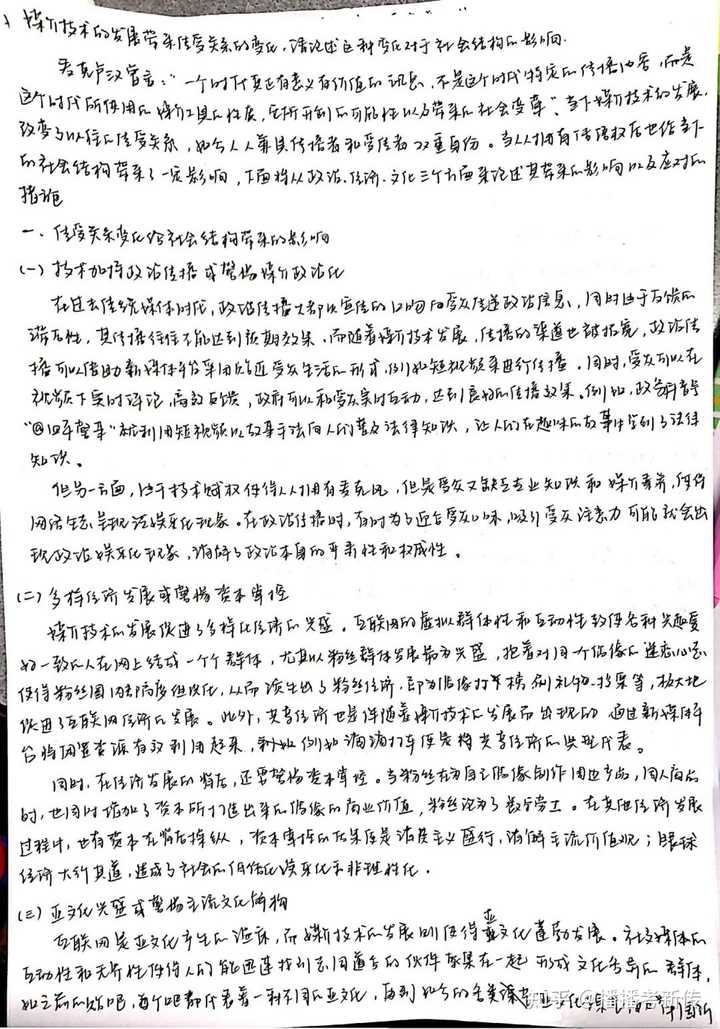 媒介技术的发展带来传受关系的变化,请论述这种变化对于社会结构的影响.
麦克卢汉曾言:“一个时代真正有意义有价值的讯息,不是这个时代特定的传播内容,而是
这个时代所使用的媒介工具的性质,它所开创的可能性以及带来的社会变革”.当下媒介技术的发展,
改变了以往的传受关系,如今人人兼具传播者和受传者双重身份。当人人拥有传播权后也给当下
的社会结构带来了一定影响,下面将从政治.经济.文化三个方面来论述其带来的影响以及应对的
措施
一、传受关系变化给社会结构带来的影响
(一)技术加持政治传播 或警惕媒介政治化
在过去传统媒体时代,政治传播大都以宣传的口吻向受众传递政治信息,同时由于反馈的
滞后性,其传播往往不能达到预期效果.而随着媒介技术发展,传播的渠道也被拓宽,政治传
播可以借助新媒体平台采用贴近受众生活的形式,例如短视频来进行传播.同时,受众可以在
视频下实时评论,高效反馈,政府可以和受众实时互动,达到良好的传播效果。例如,政务抖音号
“@四平警事”就利用短视频以故事手法向人们普及法律知识,让人们在趣味的故事中学到了法律
知识。
但另一方面,由于技术赋权使得人人拥有麦克风,但是受众又缺乏专业知识和媒介素养,使得
网络生态呈现泛娱乐化现象。在政治传播时,有时为了迎合受众口味,吸引受众注意力可能就会出
现政治娱乐化现象,消解了政治本身的严肃性和权威性。
(二)多样经济发展或警惕资本掌控
媒介技术的发展促进了多样化经济的兴盛。互联网的虚拟群体性和互动性致使各种兴趣爱
好一致的人在网上结成一个个群体,尤其以粉丝群体发展最为兴盛,抱着对同一个偶像的迷恋心态
使得粉丝圈内部高度组织化,从而诞生出了粉丝经济.即为偶像打榜,刷礼物.投票等,极大地
促进了互联网经济的发展。此外,共享经济也是伴随着媒介技术的发展而出现的 通过新媒体平
台将闲置资源有效利用起来,例如滴滴打车便是将共享经济的典型代表。
同时,在经济发展的背后,还需警惕资本掌控。当粉丝在为自己偶像制作周边产品,同人商品
时,也同时增加了资本所打造出来的偶像的商业价值,粉丝沦为了数字劳工。在其他经济发展
过程中,也有资本在背后操纵,资本掌控的后果便是消费主义盛行,消解主流价值观;眼球
经济大行其道,造成了社会的低俗化娱乐化和非理性化.
(三)亚文化兴盛或警惕主流文化解构
互联网是亚文化产生的温床,而媒介技术的发展则使得亚文化蓬勃发展。社交媒体的
互动性和无界性使得人们能迅速找到志同道合的伙伴聚集在一起 形成文化各异的群体,
如之前的贴吧,每个吧都代表着一种不同的亚文化,再到如今的各类
知乎 @播播考新传